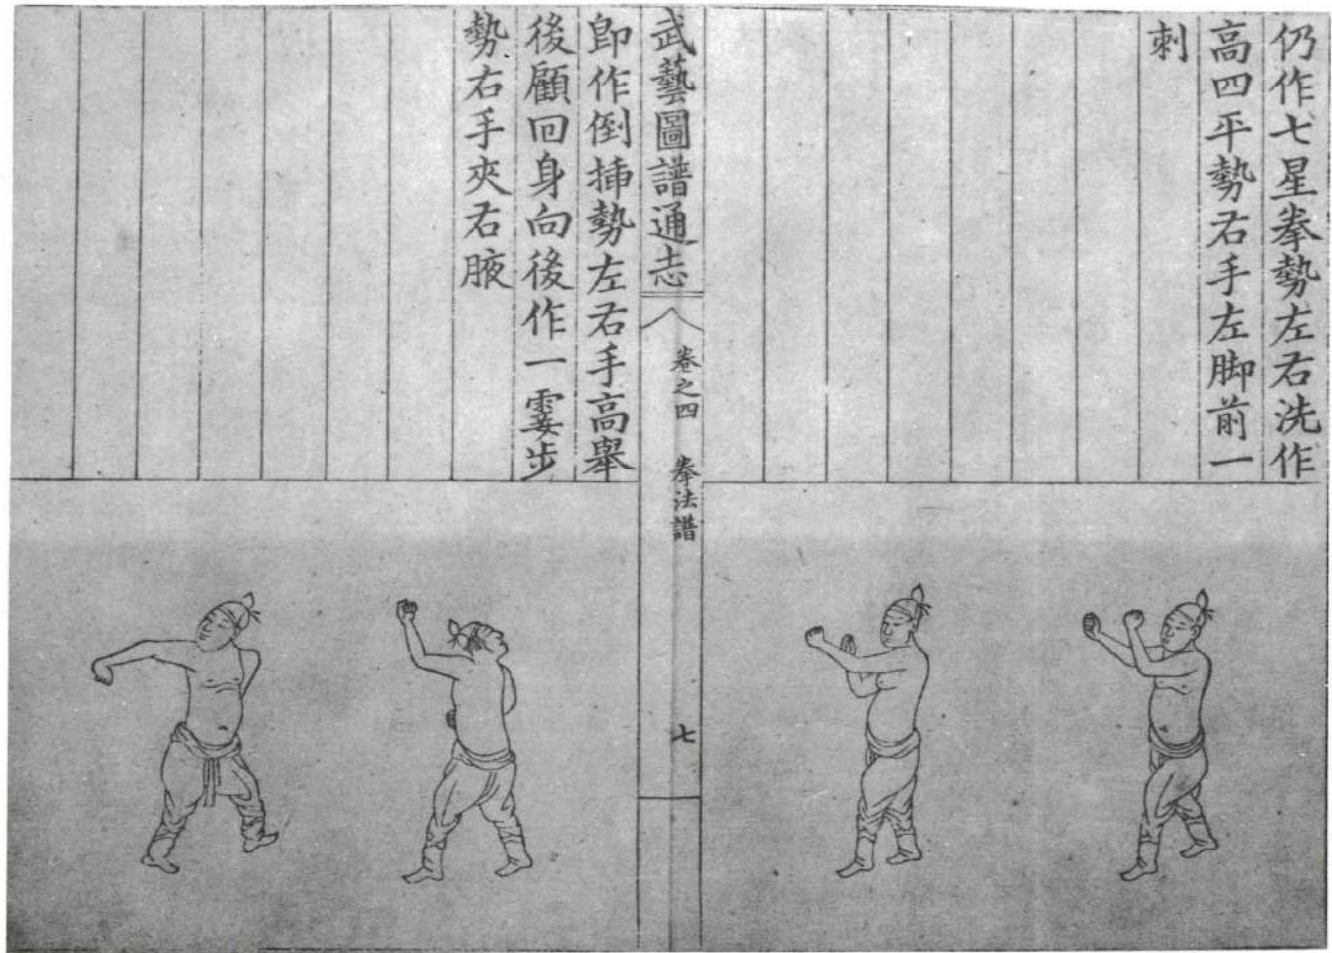 仍作七星拳勢左右洗作
高四平勢右手左脚前一
刺
武藝圖譜通志
卷之四
拳法譜
七
卽作倒揷勢左右手高擧
後顧回身向後作一霎步
勢右手夾右腋